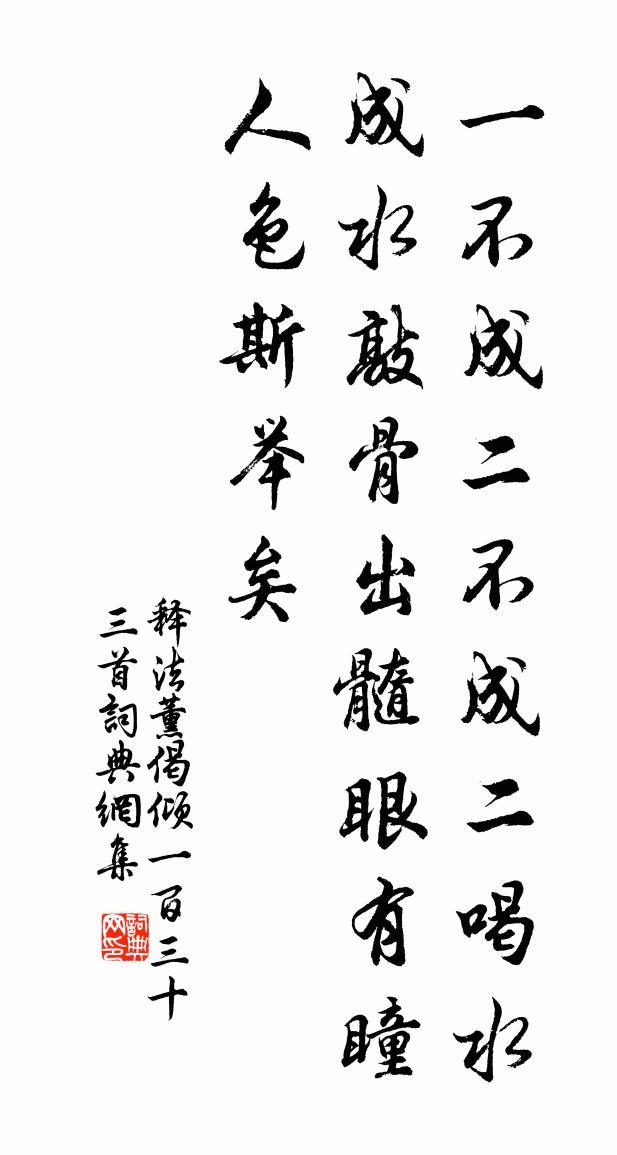 一不成二不成二喝水
成水敲骨出髓眼有瞳
人色斯举矣
释法薰偈倾一百三十
三首詞典網集
詞典网印